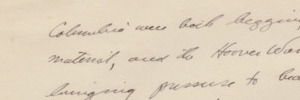 Columbia were both begging
material, and the Hoover War
bringing pressure to bea